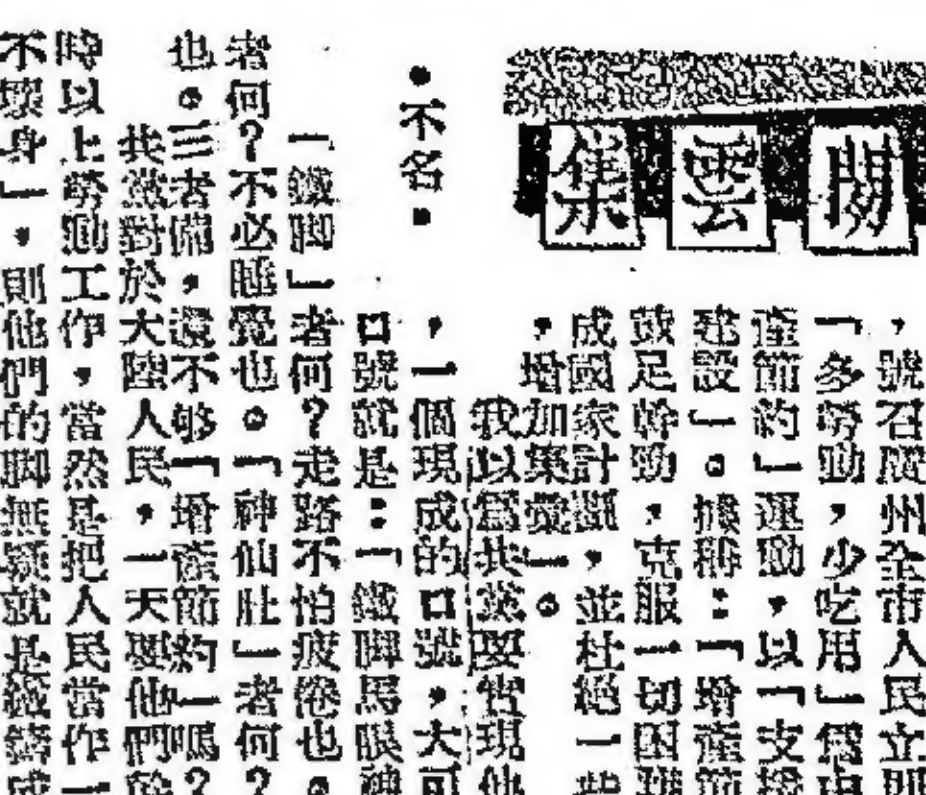 閒雲集
●不名■
，號召廣州全市人民立即
「多勞動，少吃用」爲中
產節約」運動，以「支援
建設」。據稱：「增產節
鼓足幹勁，克服一切困難
成國家計劃，並杜絕一些
，增加集」。
我以爲共黨要實現他
，一個現成的口號，大可
口號就是：「鐵脚馬眼神
「鐵脚」者何？走路不怕疲倦也。
者何？不必睡覺也。「神仙肚」者何？
也。三者備，還不够「增產節約」嗎？
共黨對於大陸人民，一天要他們幹
時以上勞動工作，當然是把人民當作一
不壞身」，則他們的脚無疑就是鐵鑄成